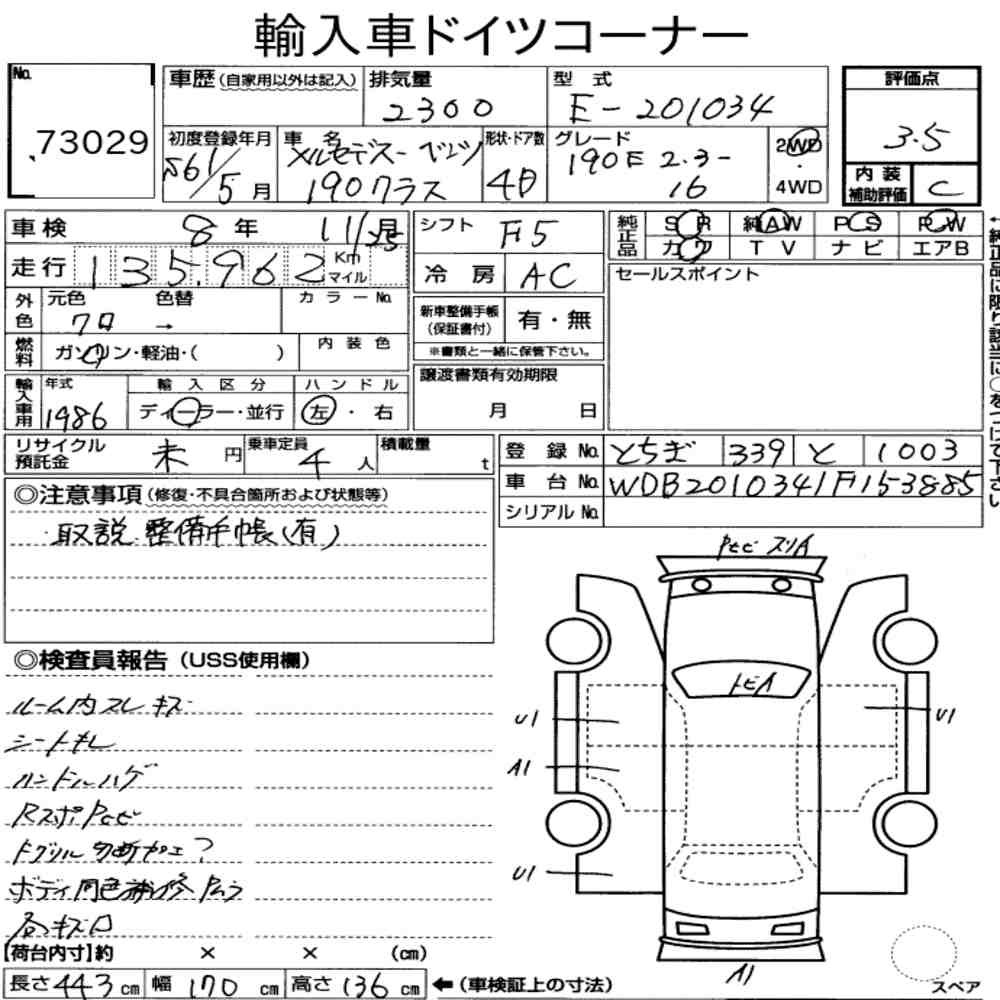 輸入車ドイツコーナー
No. 73029
車歴 (自家用以外は記入) 排気量 2300 型式 E-201034 評価点 3.5
初度登録年月 S61/5月 車名 メルセデス-ベンツ 190クラス 形状・ドア数 4D グレード 190E 2.3-16 2WD・4WD 内装補助評価 C
車検 8年 11/25月 シフト F5 純正品 SR 純AW PS PW
走行 135,962 Km マイル 冷房 AC カワ TV ナビ エアB
←純正品に限り該当に○をつけて下さい
外色 元色 クロ 色替 → カラーNo. 新車整備手帳(保証書付) 有・無 セールスポイント
燃料 ガソリン・軽油・( ) 内装色 ※書類と一緒に保管下さい。
輸入車用 年式 1986 輸入区分 ディーラー・並行 ハンドル 左・右 譲渡書類有効期限 月 日
リサイクル預託金 未 円 乗車定員 4人 積載量 t 登録No. とちぎ 339 と 1003
車台No. WDB2010341F153885
シリアルNo.
◎注意事項(修復・不具合箇所および状態等)
取説 整備手帳(有)
◎検査員報告(USS使用欄)
ルーム内スレ キズ
シートキレ
ハンドルハゲ
Rスポ Pヒビ
Fグリル 切断加工?
ボディ同色補修 Pムラ
各キズ
Pヒビ スリA
トビA
U1
U1
A1
U1
A1
スペア
【荷台内寸】約 × × (cm)
長さ 443 cm 幅 170 cm 高さ 136 cm ←(車検証上の寸法)